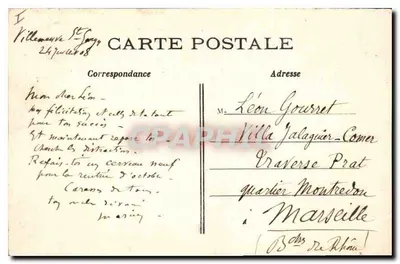 I
Villeneuve St Georges
CARTE POSTALE
Correspondance
Adresse
Mon cher Léon
félicitations et de ta tante
pour ton succès
Et maintenant repose toi
cherche les distractions.
Refais-toi un cerveau neuf
pour la rentrée d'octobre.
Caresses de tous.
M. Léon Gourret
Villa Jalaguier-Comer
Traverse Prat
quartier Montredon
à Marseille
(Bches du Rhône)
CPAPHIL